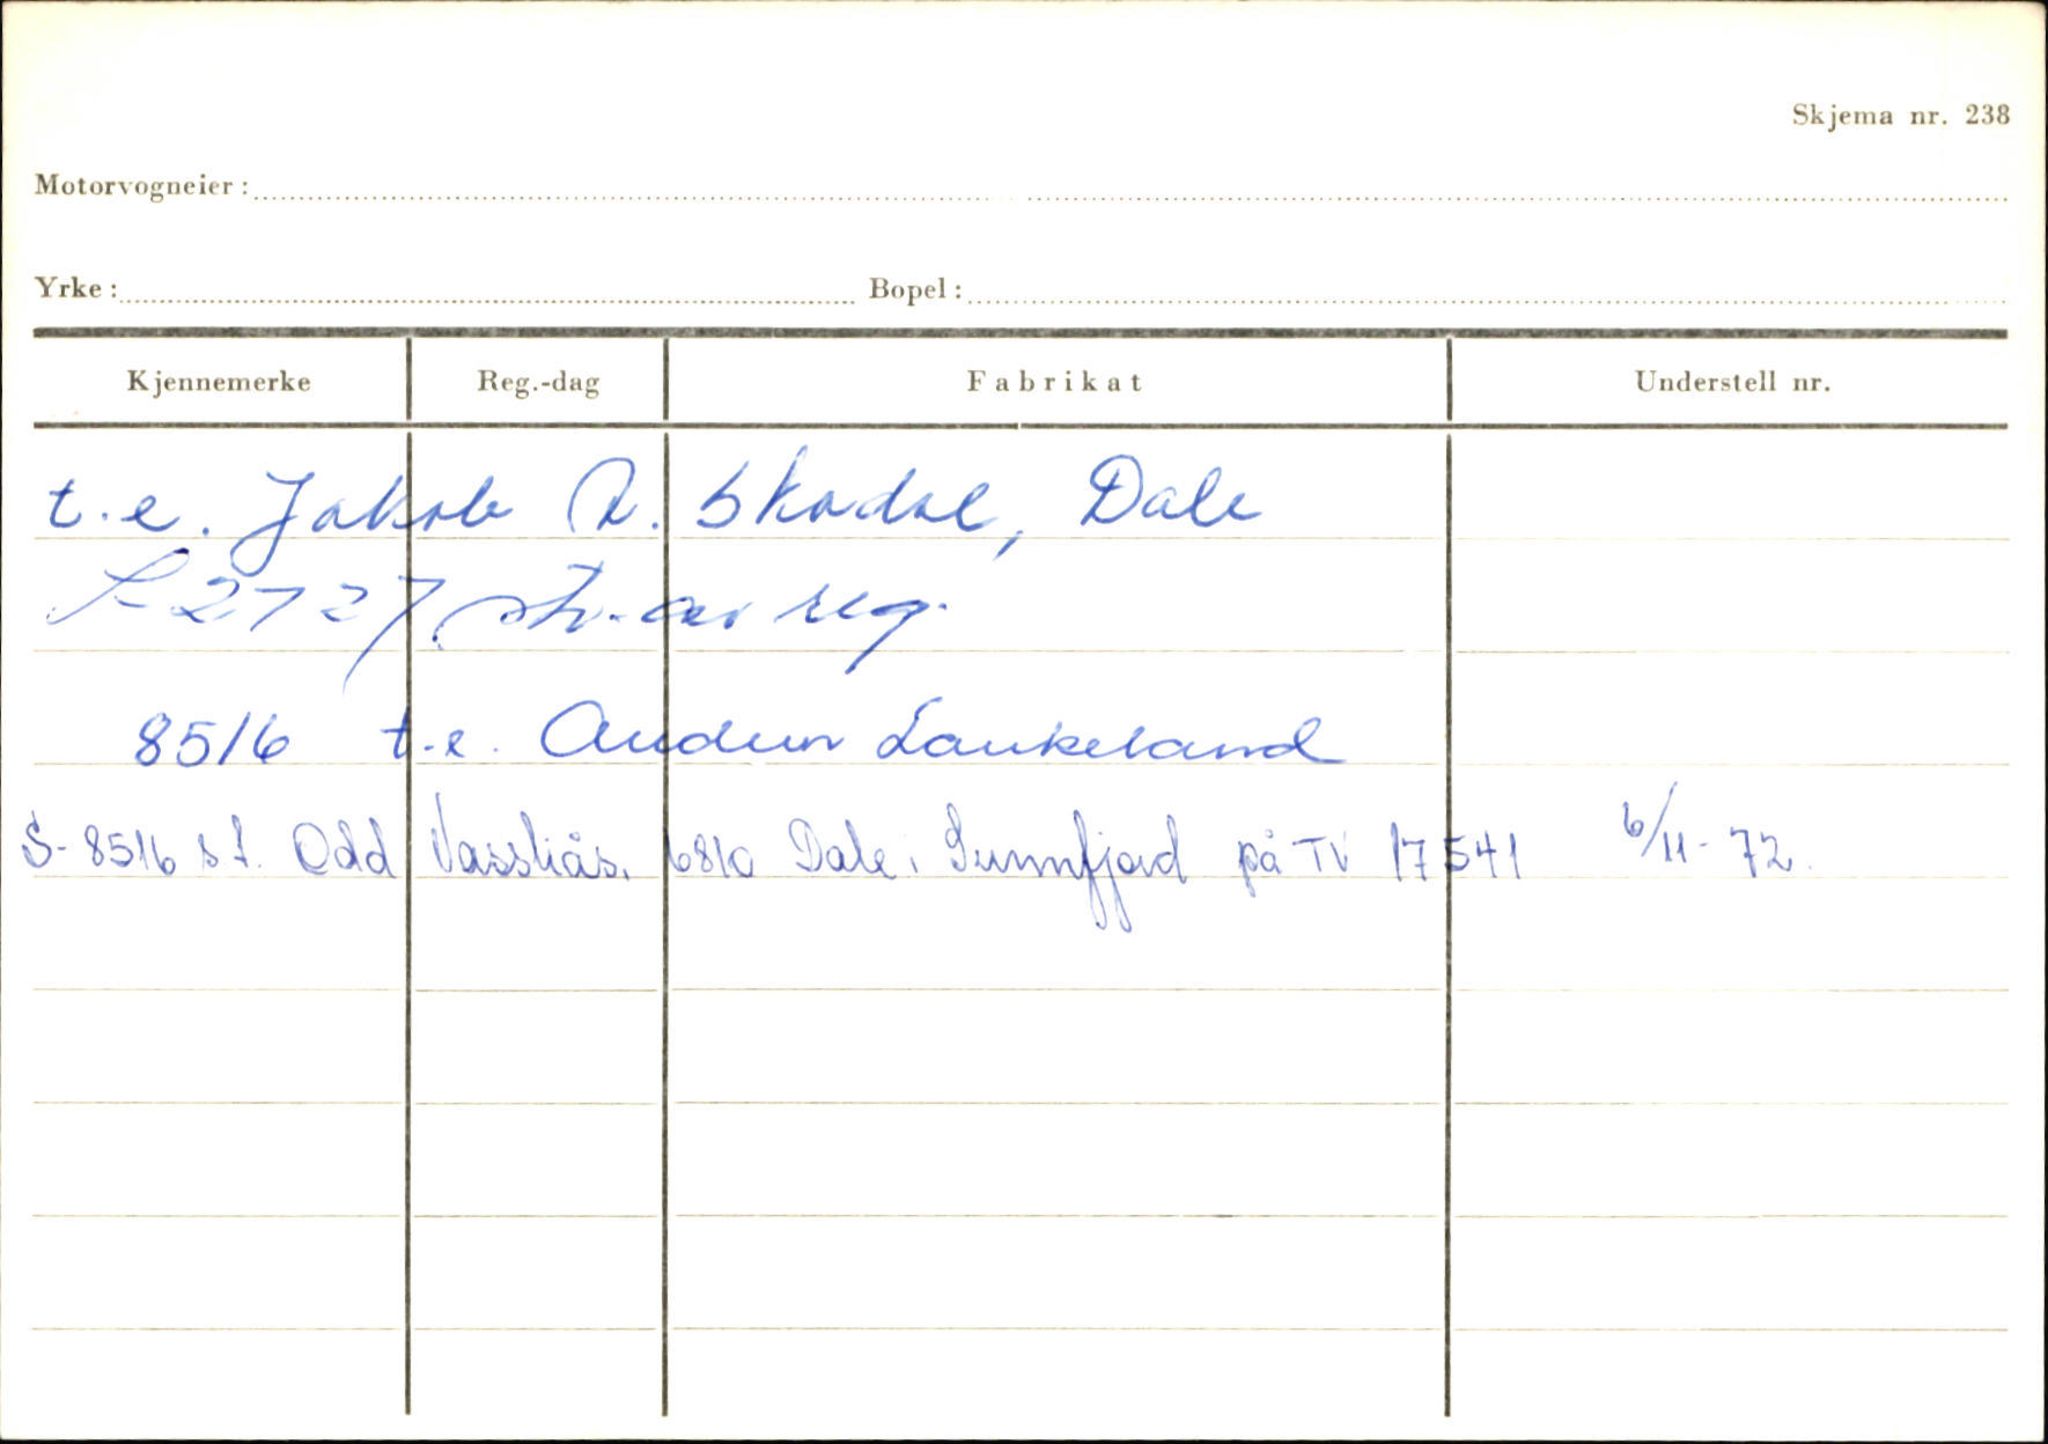 Skjema nr. 238
Motorvogneier:
Yrke: Bopel:
Kjennemerke Reg.-dag Fabrikat Understell nr.
t.e. Jakob R. Skodal, Dale
S 2727 str. av reg.
8516 t.e. Audun Laukeland
S-8516 s.f. Odd Vassliås, 6810 Dale i Sunnfjord på TV 17541 6/11-72.